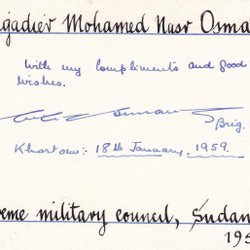 igadier Mohamed Nasr Osma
with my compliments and good
wishes.
Brig.
Khartoum: 18th January, 1959.
eme military council, Sudan
195